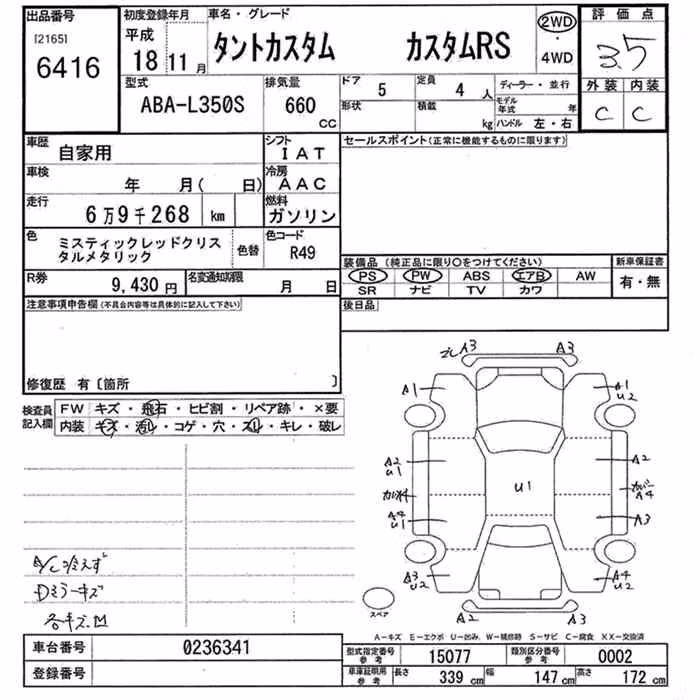 出品番号
[2165]
6416
初度登録年月
平成
18 11 月
車名・グレード
タントカスタム カスタムRS
2WD
・
4WD
評価点
3.5
外装 内装
C C
型式
ABA-L350S
排気量
660
CC
ドア
5
形状
定員
4 人
積載
kg
ディーラー・並行
モデル年式 年
ハンドル 左・右
車歴
自家用
シフト
IAT
車検
年 月( 日)
冷房
AAC
走行
6万9千268 km
燃料
ガソリン
色
ミスティックレッドクリス
タルメタリック
色替
色コード
R49
R券
9,430 円
名変通知期限
月 日
セールスポイント(正常に機能するものに限ります)
装備品 (純正品に限り○をつけてください)
PS PW ABS エアB AW
SR ナビ TV カワ
新車保証書
有・無
後日品
注意事項申告欄(不具合内容等は具体的に記入して下さい)
修復歴 有〔箇所 〕
検査員
記入欄
FW キズ・飛石・ヒビ割・リペア跡・×要
内装 キズ・汚レ・コゲ・穴・スレ・キレ・破レ
A/C冷えず
Dミラーキズ
各キズ凹
A3 A3
A1 A1
U2
A2
U1
A2
U1
カバー
A4
A4
U1
A3
A3
U2
A4
U2
A2 A3
スペア
A-キズ E-エクボ U-凹み W-補修跡 S-サビ C-腐食 XX-交換済
車台番号 0236341
登録番号
型式指定番号
参考
15077
類別区分番号
参考
0002
車庫証明用
参考
長さ 339 cm 幅 147 cm 高さ 172 cm